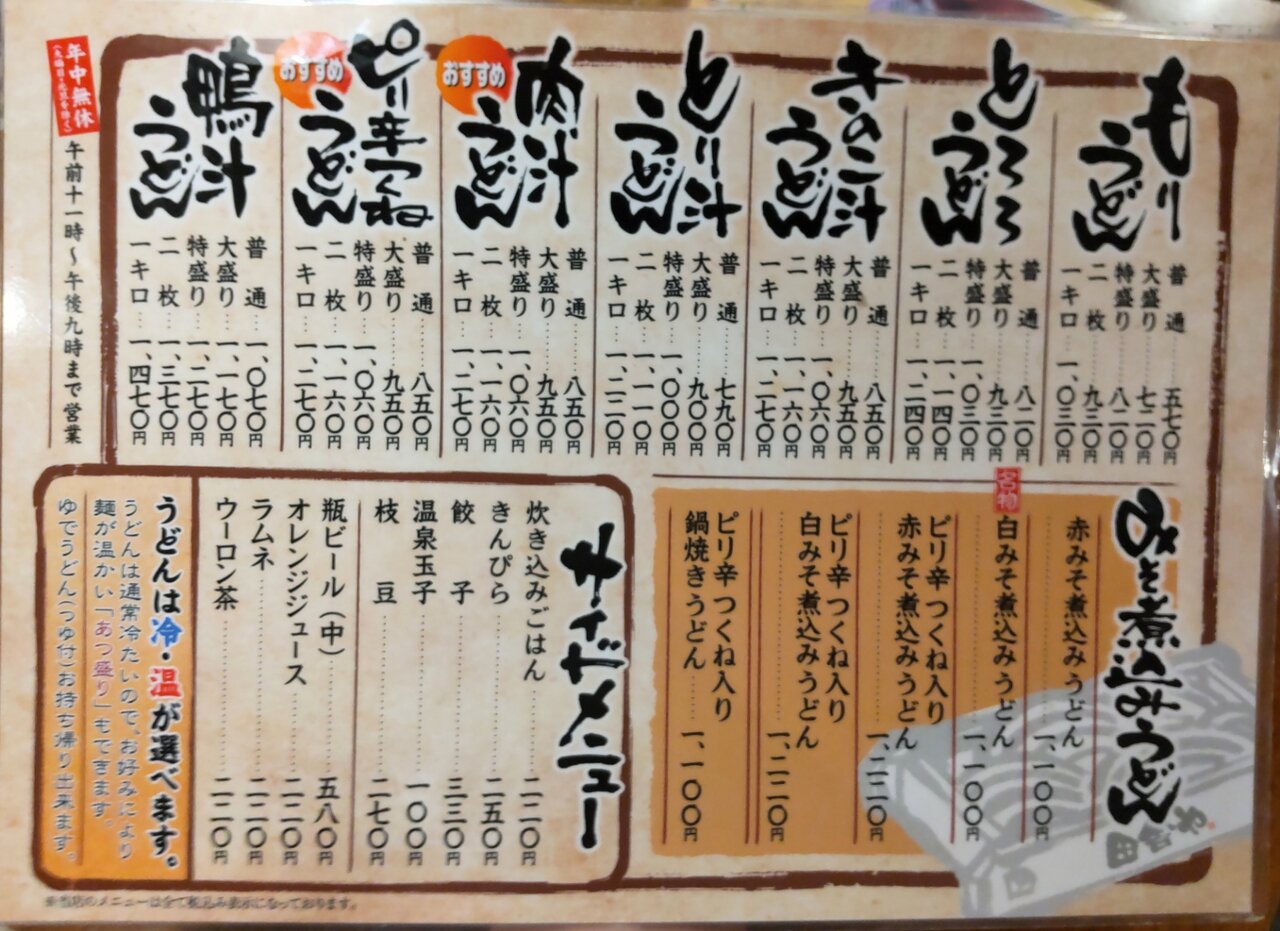 もりうどん
普通 五七〇円
大盛り 七二〇円
特盛り 八二〇円
二枚 九三〇円
一キロ 一、〇三〇円
とろろうどん
普通 八二〇円
大盛り 九三〇円
特盛り 一、〇三〇円
二枚 一、一四〇円
一キロ 一、二四〇円
きのこ汁うどん
普通 八五〇円
大盛り 九五〇円
特盛り 一、〇六〇円
二枚 一、一六〇円
一キロ 一、二七〇円
とり汁うどん
普通 七九〇円
大盛り 九〇〇円
特盛り 一、〇〇〇円
二枚 一、一一〇円
一キロ 一、二二〇円
おすすめ
肉汁うどん
普通 八五〇円
大盛り 九五〇円
特盛り 一、〇六〇円
二枚 一、一六〇円
一キロ 一、二七〇円
おすすめ
ピリ辛つくねうどん
普通 八五〇円
大盛り 九五〇円
特盛り 一、〇六〇円
二枚 一、一六〇円
一キロ 一、二七〇円
鴨汁うどん
普通 一、〇七〇円
大盛り 一、一七〇円
特盛り 一、二七〇円
二枚 一、三七〇円
一キロ 一、四七〇円
年中無休
午前十一時〜午後九時まで営業
みそ煮込みうどん
赤みそ煮込みうどん 一、一〇〇円
名物
白みそ煮込みうどん 一、一〇〇円
ピリ辛つくね入り
赤みそ煮込みうどん 一、二二〇円
ピリ辛つくね入り
白みそ煮込みうどん 一、二二〇円
ピリ辛つくね入り
鍋焼きうどん 一、一〇〇円
田舎や
サイドメニュー
炊き込みごはん 二二〇円
きんぴら 二五〇円
餃子 三三〇円
温泉玉子 一〇〇円
枝豆 二七〇円
瓶ビール（中） 五八〇円
オレンジジュース 二二〇円
ラムネ 二二〇円
ウーロン茶 二二〇円
うどんは冷・温が選べます。
うどんは通常冷たいので、お好みにより
麺が温かい「あつ盛り」もできます。
ゆでうどん(つゆ付)お持ち帰り出来ます。
※当店のメニューは全て税込み表示になっております。